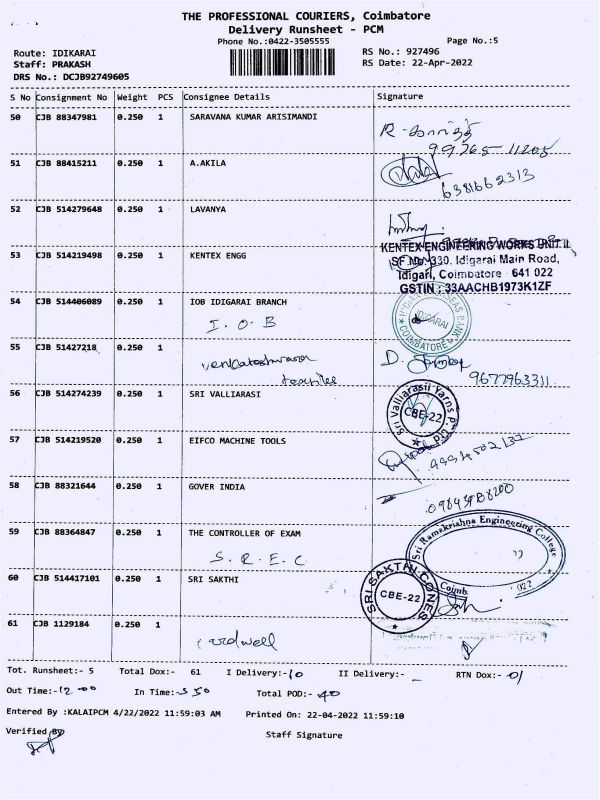 THE PROFESSIONAL COURIERS, Coimbatore
Delivery Runsheet - PCM
Phone No.:0422-3505555
Page No.:5
Route: IDIKARAI
RS No.: 927496
Staff: PRAKASH
RS Date: 22-Apr-2022
DRS No.: DCJB92749605
S No Consignment No Weight PCS Consignee Details Signature
50 CJB 88347981 0.250 1 SARAVANA KUMAR ARISIMANDI
99765 11205
51 CJB 88415211 0.250 1 A.AKILA
6381662313
52 CJB 514279648 0.250 1 LAVANYA
KENTEX ENGINEERING WORKS UNIT.II
53 CJB 514219498 0.250 1 KENTEX ENGG
SF.No: 330, Idigarai Main Road,
Idigari, Coimbatore - 641 022
GSTIN : 33AACHB1973K1ZF
54 CJB 514406089 0.250 1 IOB IDIGARAI BRANCH
I. O. B
IDIGARAI
COIMBATORE
55 CJB 51427218 0.250 1
venkateshwara
textiles
D.
9677963311
56 CJB 514274239 0.250 1 SRI VALLIARASI
Sri Valliarasii Yarns P. Ltd
CBE-22
57 CJB 514219520 0.250 1 EIFCO MACHINE TOOLS
9994502132
58 CJB 88321644 0.250 1 GOVER INDIA
59 CJB 88364847 0.250 1 THE CONTROLLER OF EXAM
S. R. E. C
Sri Ramakrishna Engineering College
Coimb
022
60 CJB 514417101 0.250 1 SRI SAKTHI
SRI SAKTHI CONES
CBE-22
61 CJB 1129184 0.250 1
Cardwell
Tot. Runsheet:- 5 Total Dox:- 61 I Delivery:- 10 II Delivery:- RTN Dox:- 01
Out Time:- 12 00 In Time:- 5 50 Total POD:- 40
Entered By :KALAIPCM 4/22/2022 11:59:03 AM Printed On: 22-04-2022 11:59:10
Verified By
Staff Signature